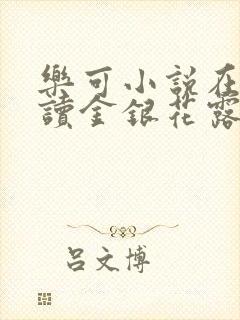 樂可小說在
讀金銀花露
吕文博